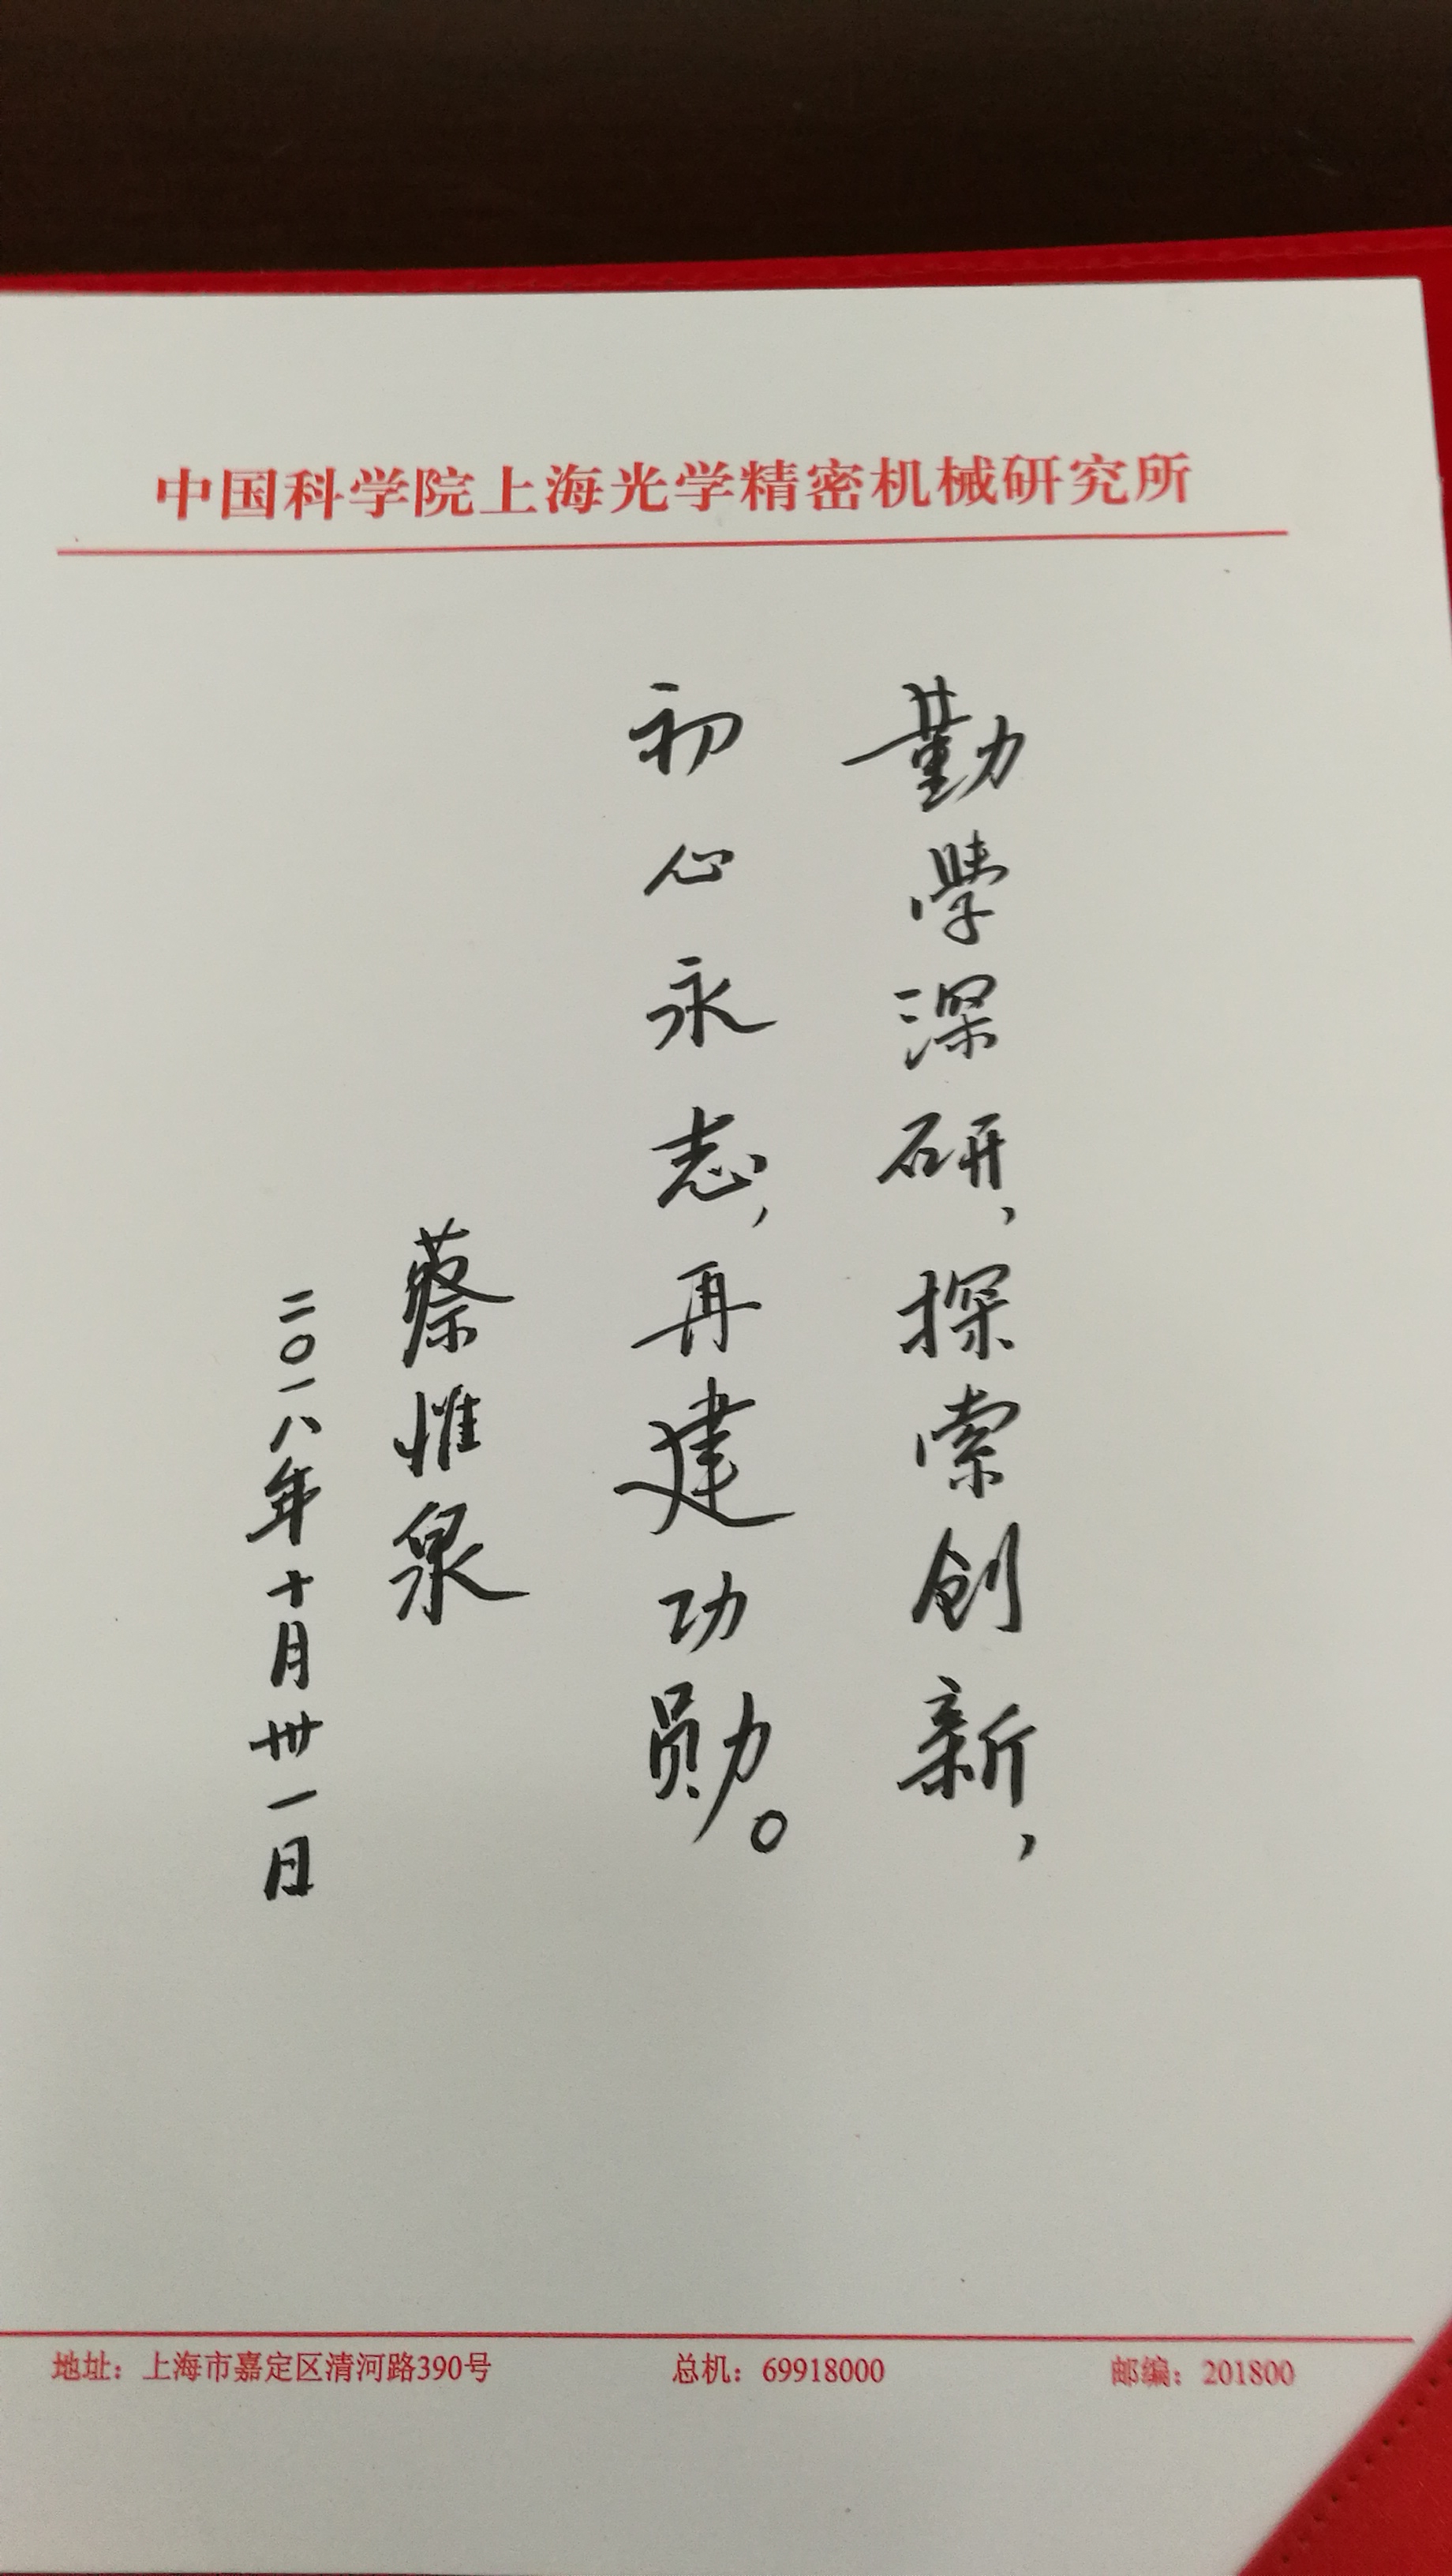 中国科学院上海光学精密机械研究所
勤学深研，探索创新，
初心永志，再建功勋。
蔡惟泉
二〇一八年十月卅一日
地址：上海市嘉定区清河路390号 总机：69918000 邮编：201800